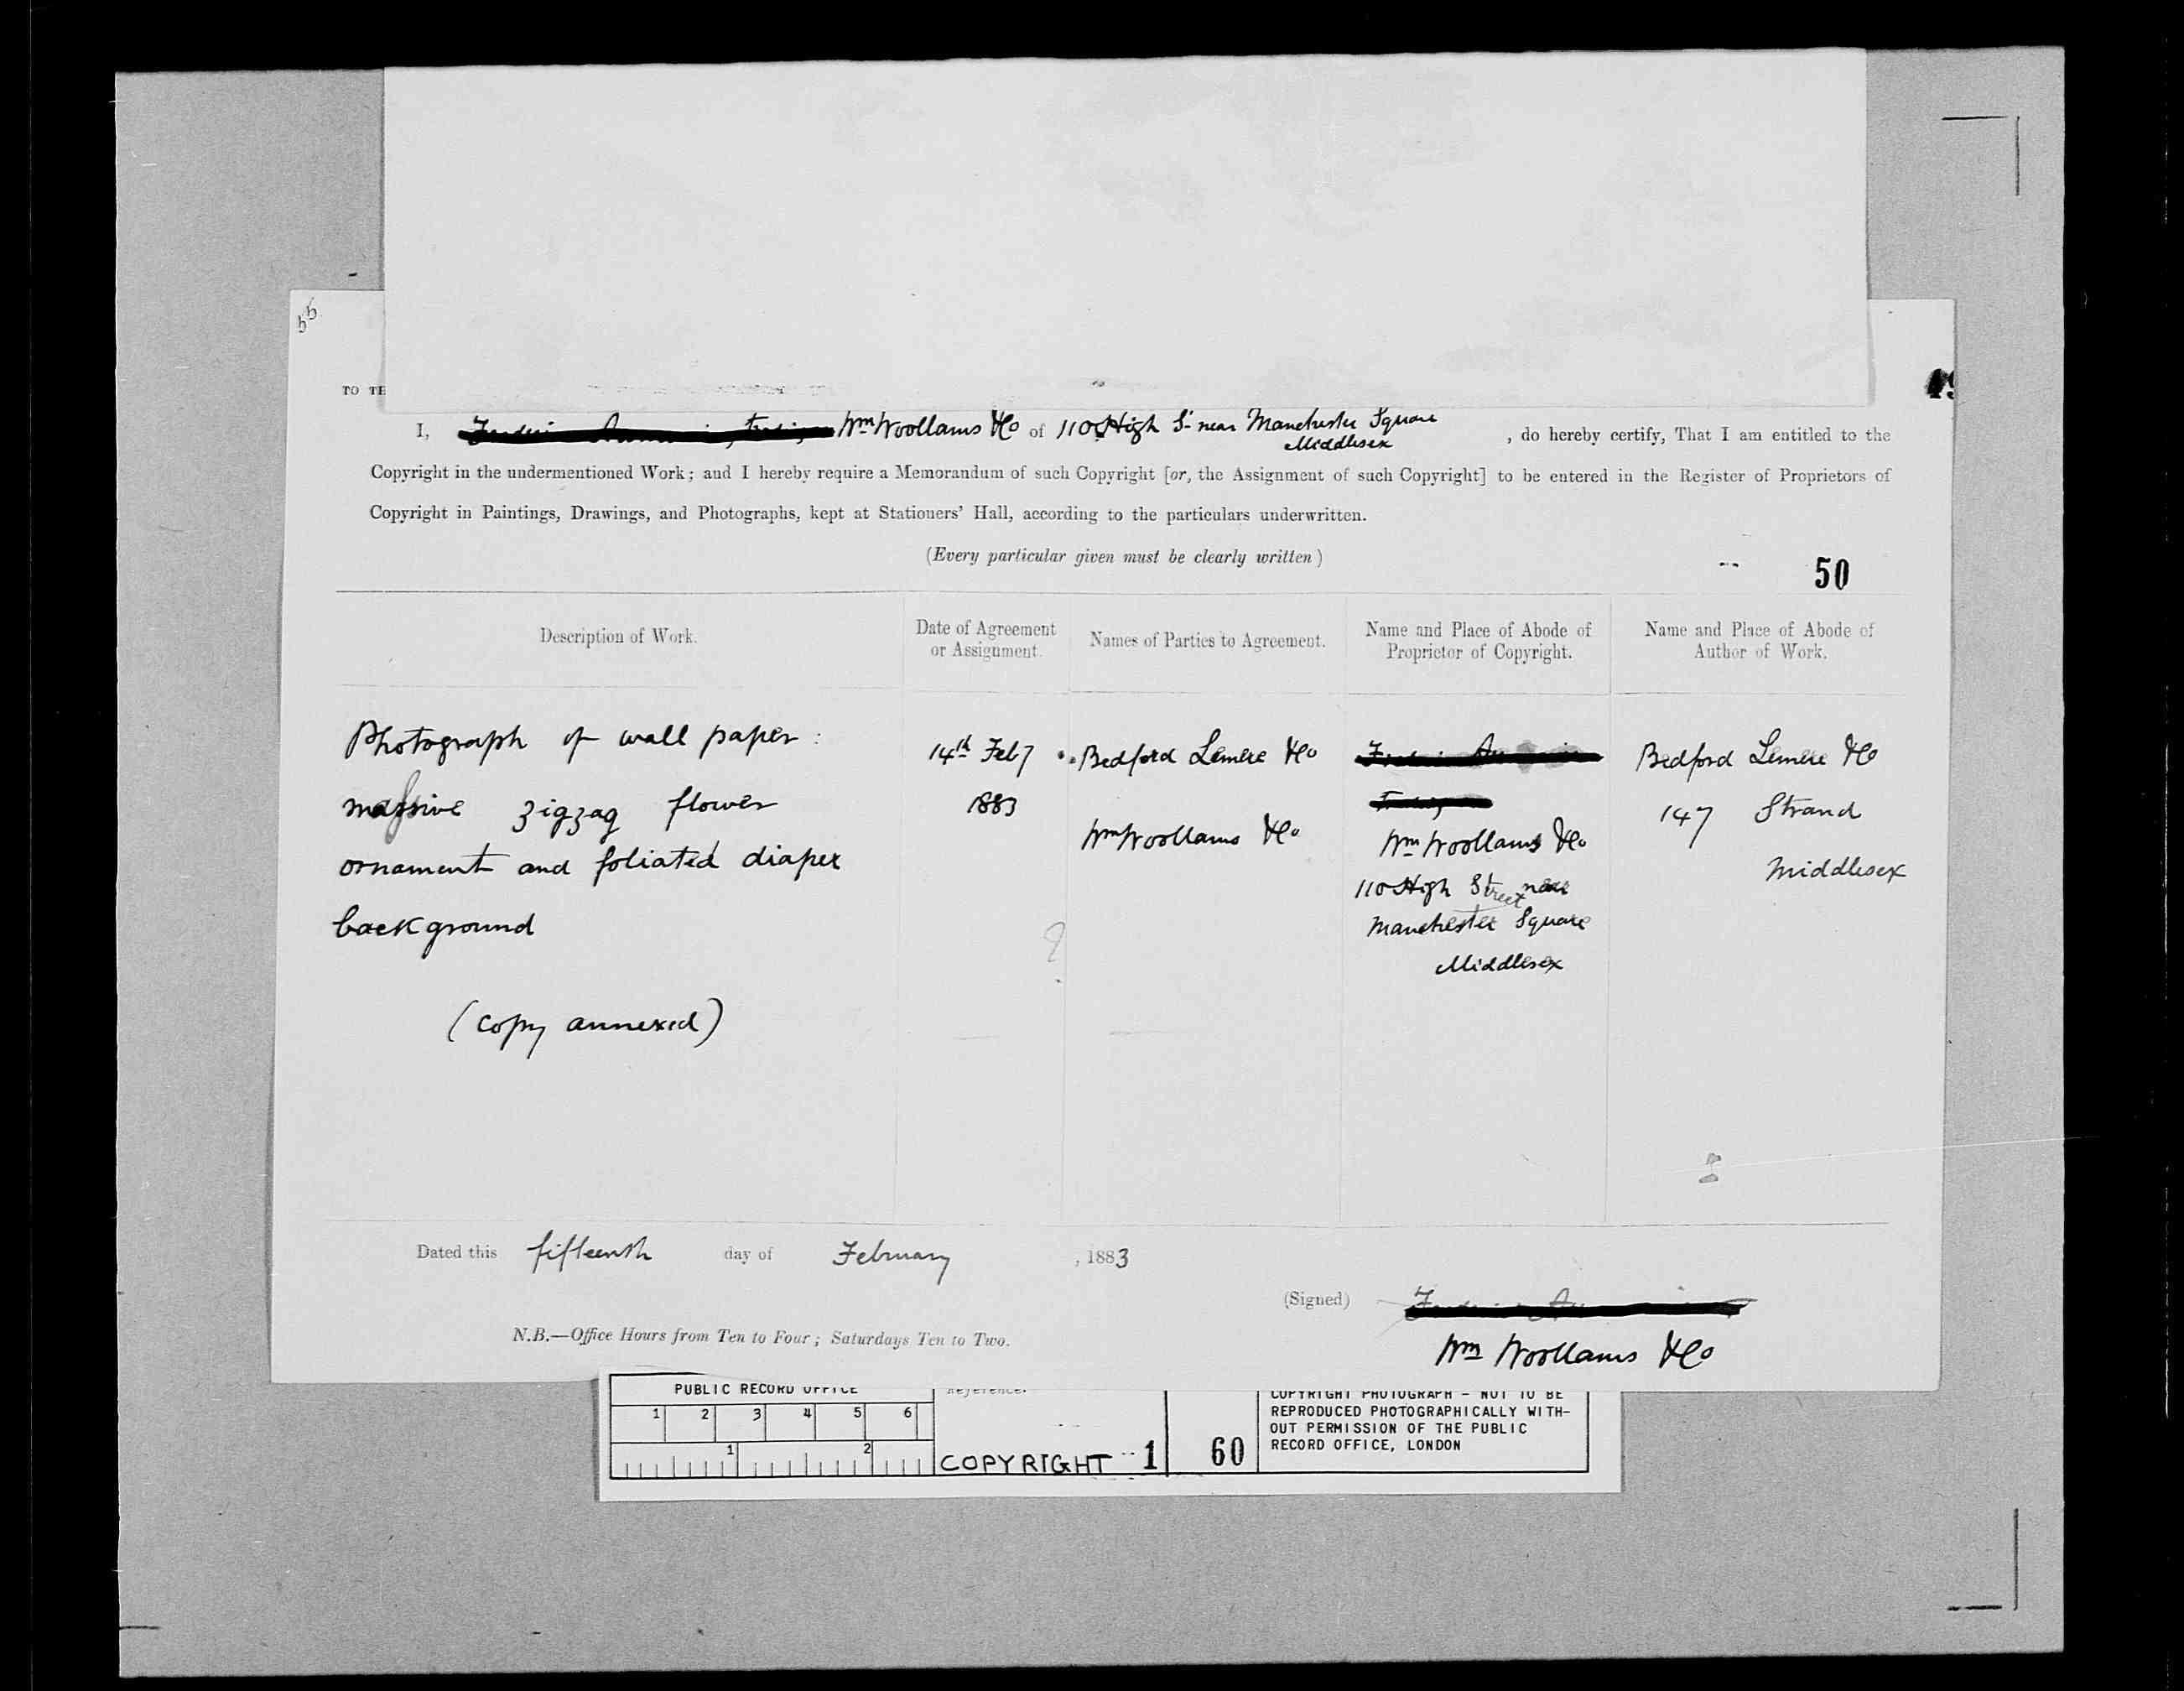 TO TE
I, Wm Woollams & Co of 110 High St near Manchester Square Middlesex, do hereby certify, That I am entitled to the
Copyright in the undermentioned Work; and I hereby require a Memorandum of such Copyright [or, the Assignment of such Copyright] to be entered in the Register of Proprietors of
Copyright in Paintings, Drawings, and Photographs, kept at Stationers' Hall, according to the particulars underwritten.
(Every particular given must be clearly written)
50
Description of Work.
Date of Agreement
or Assignment.
Names of Parties to Agreement.
Name and Place of Abode of
Proprietor of Copyright.
Name and Place of Abode of
Author of Work.
Photograph of wall paper:
massive zigzag flower
ornament and foliated diaper
background
(copy annexed)
14th Feby
1883
Bedford Lemere & Co
Wm Woollams & Co
Wm Woollams & Co
110 High Street near
Manchester Square
Middlesex
Bedford Lemere & Co
147 Strand
Middlesex
Dated this fifteenth day of February, 1883
(Signed)
Wm Woollams & Co
N.B.—Office Hours from Ten to Four; Saturdays Ten to Two.
PUBLIC RECORD OFFICE
1 2 3 4 5 6
1 2
Reference:
COPYRIGHT 1
60
COPYRIGHT PHOTOGRAPH - NOT TO BE
REPRODUCED PHOTOGRAPHICALLY WITH-
OUT PERMISSION OF THE PUBLIC
RECORD OFFICE, LONDON